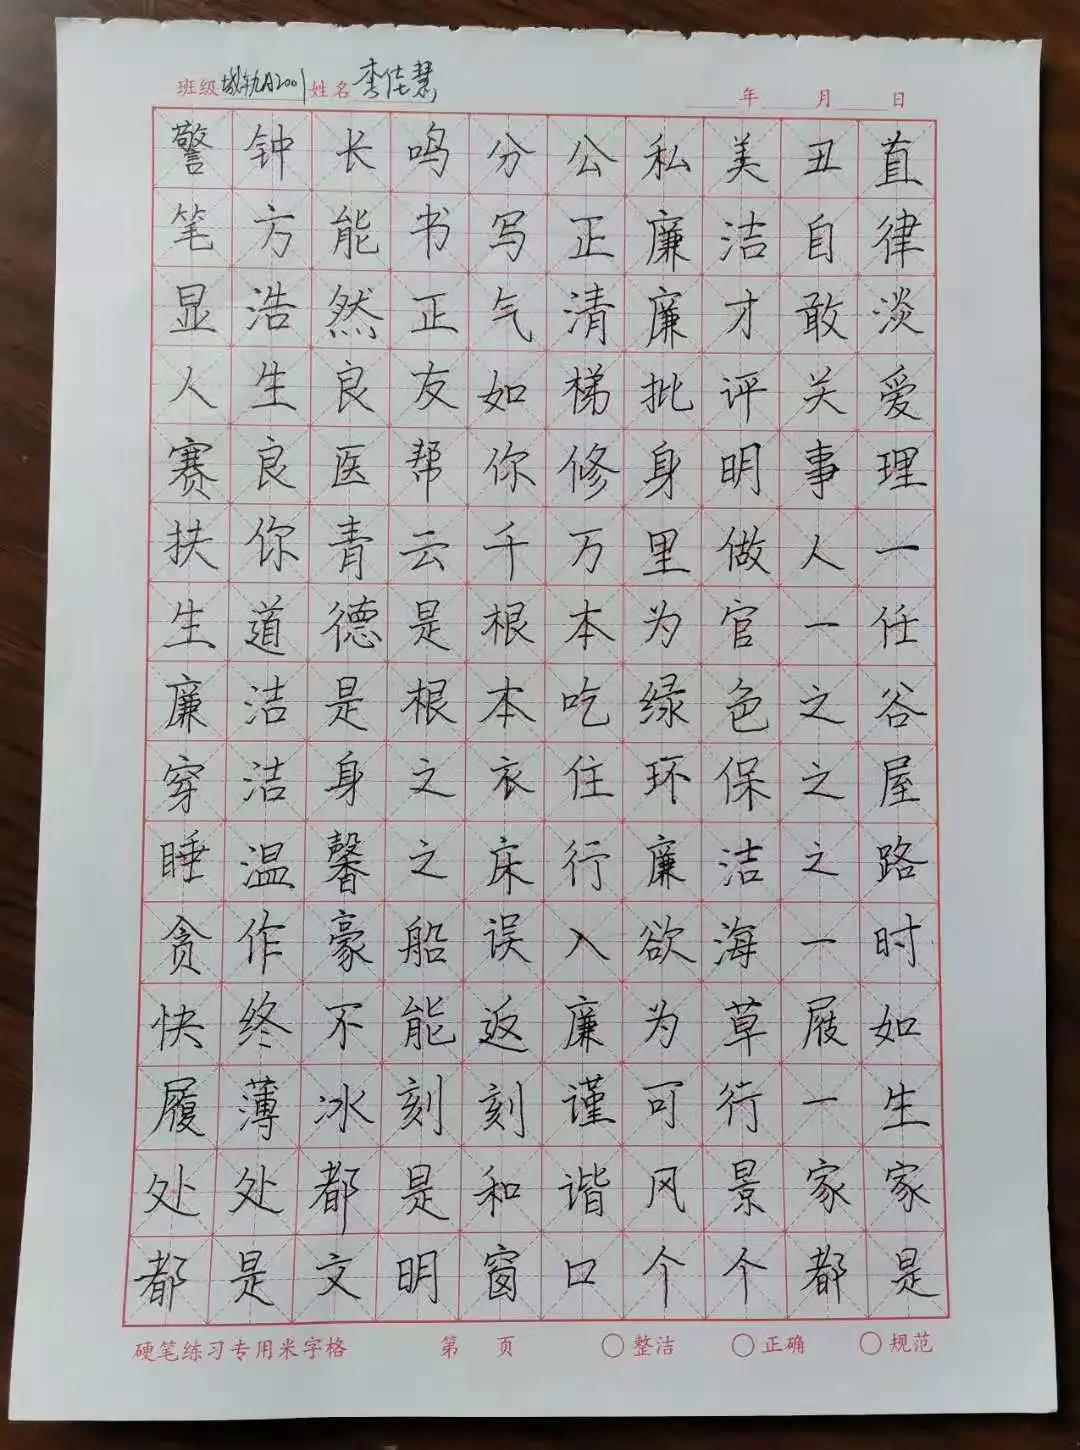 班级 城轨A2001 姓名 李佳慧 年 月 日
警钟长鸣分公私美丑直
笔方能书写正廉洁自律
显浩然正气清廉才敢淡
人生良友如梯批评关爱
赛良医帮你修身明事理
扶你青云千万里做人一
生道德是根本为官一任
廉洁是根本吃绿色之谷
穿洁身之衣住环保之屋
睡温馨之床行廉洁之路
贪作豪船误入欲海一时
快终不能返廉为草屐如
履薄冰刻刻谨可行一生
处处都是和谐风景家家
都是文明窗口个个都是
硬笔练习专用米字格 第 页 整洁 正确 规范